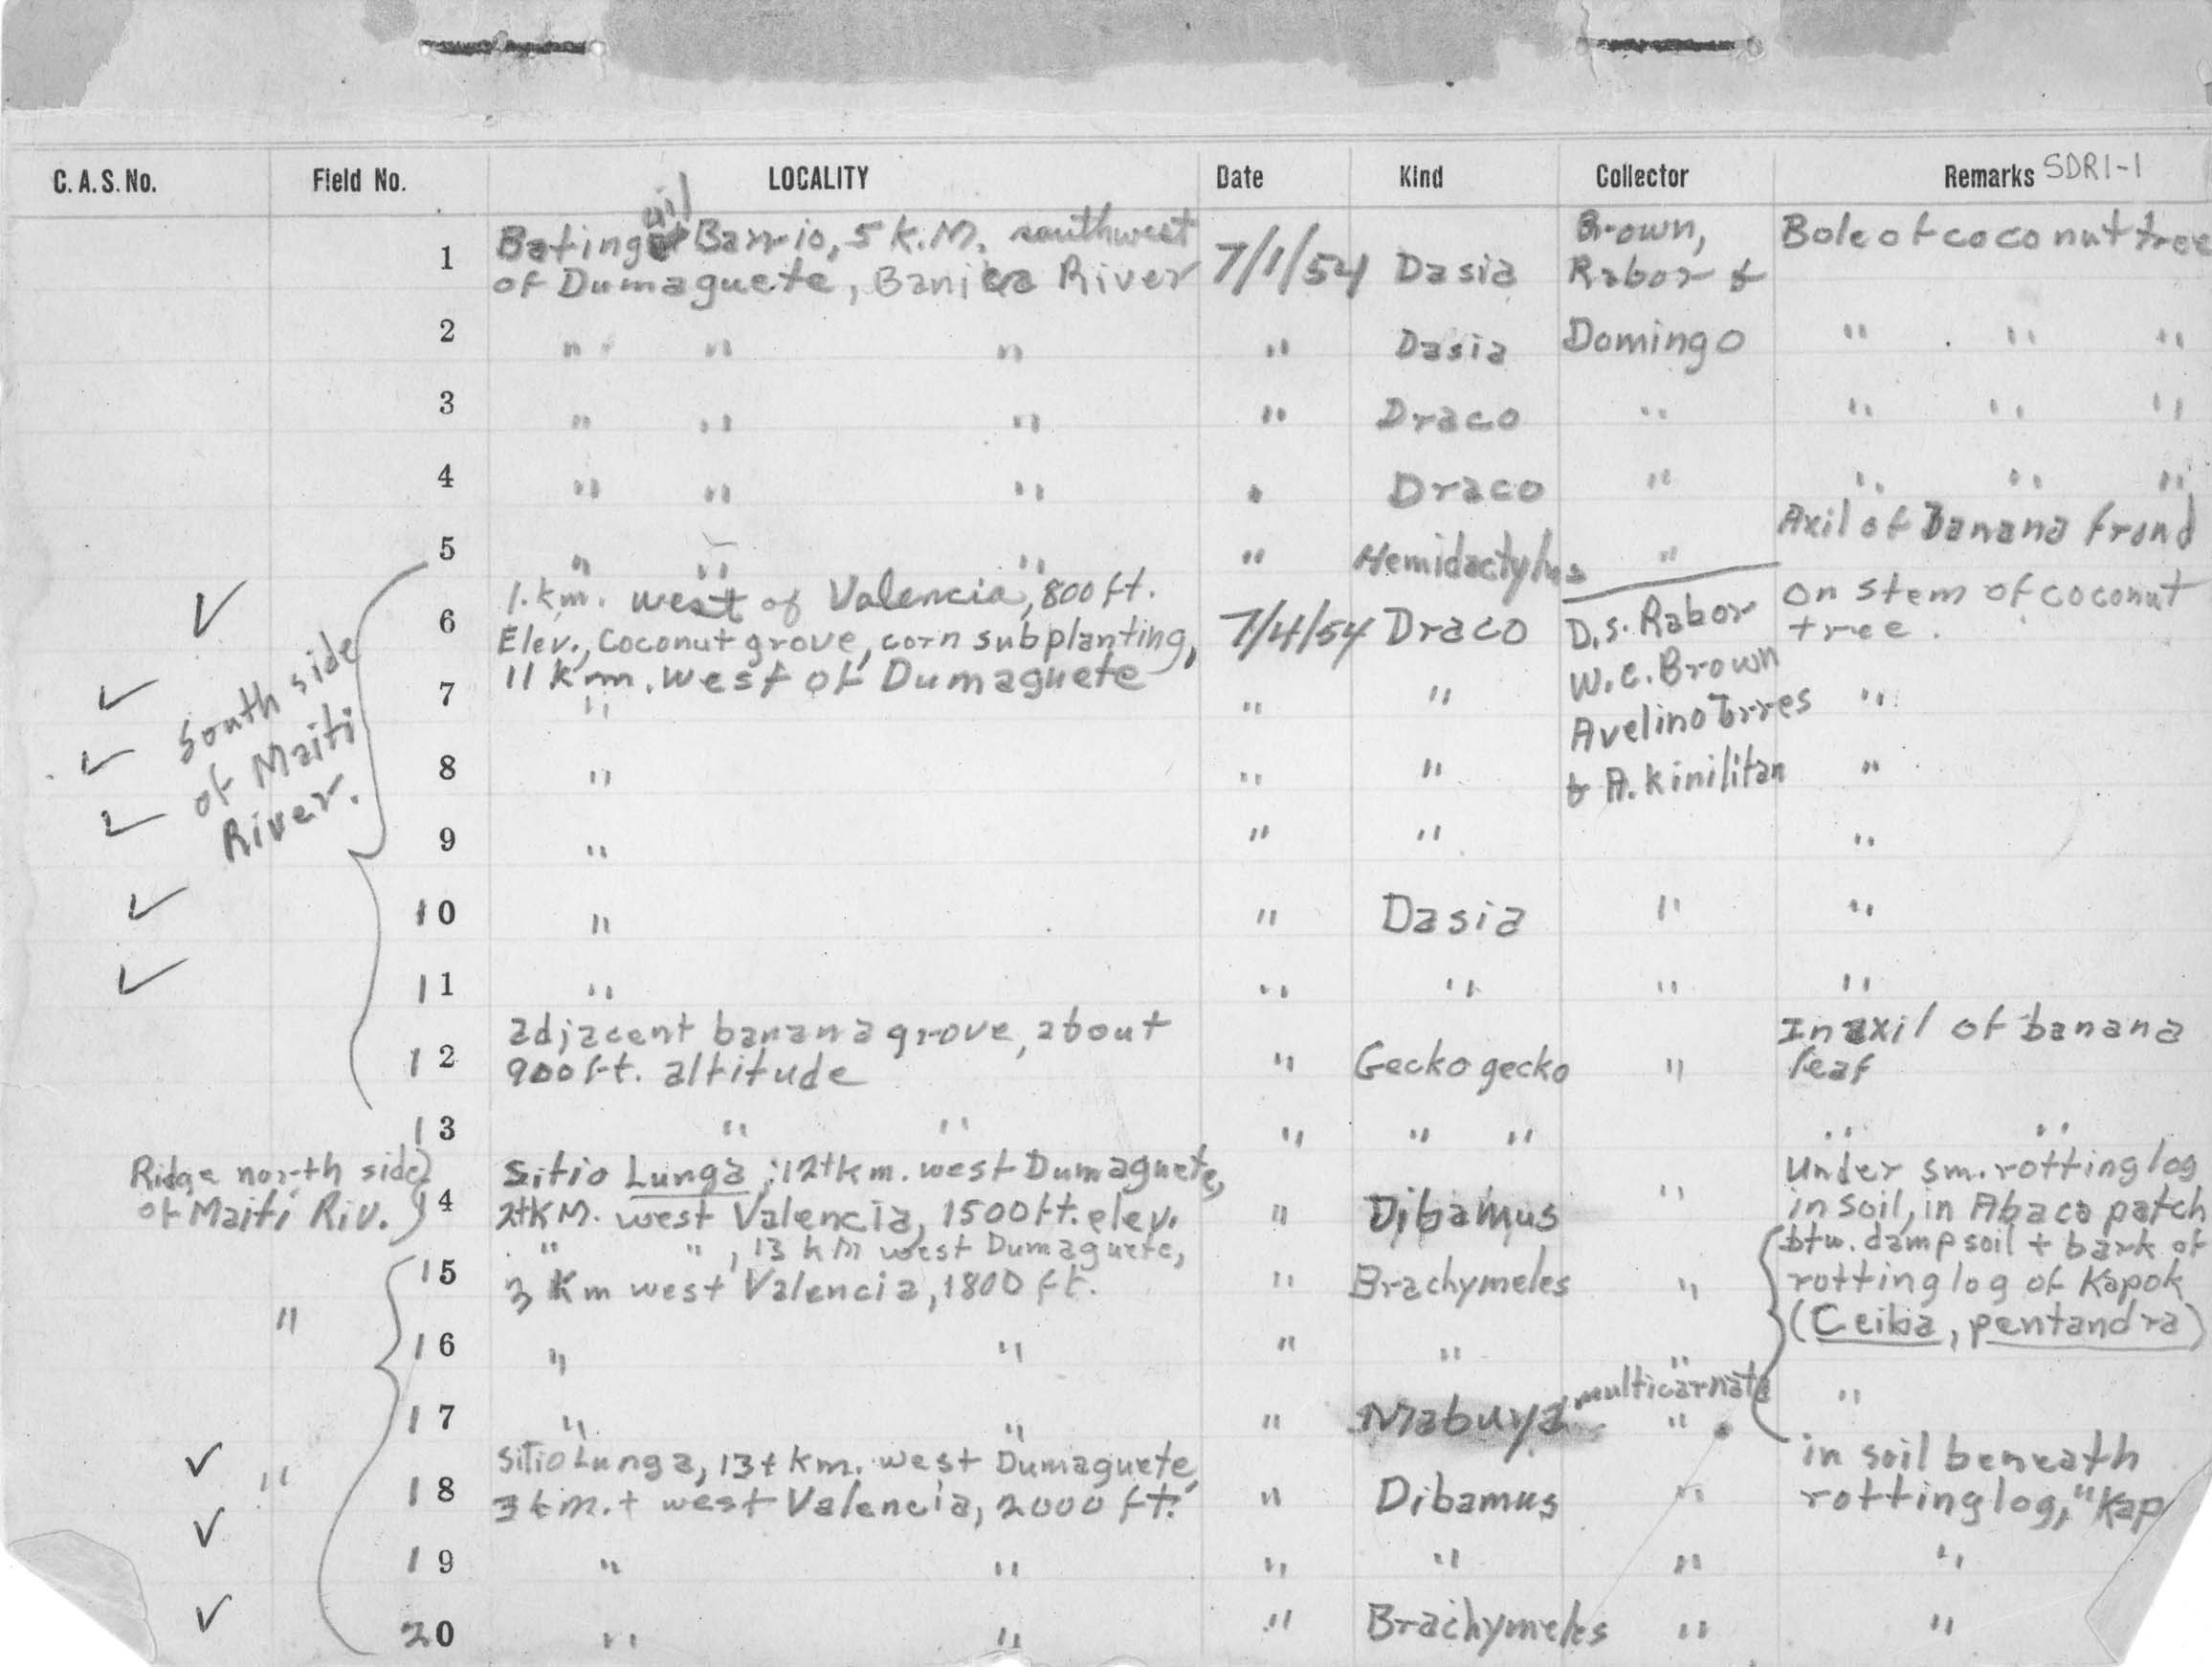 C.A.S. No. Field No. LOCALITY Date Kind Collector Remarks SDR1-1
uil
1 Bating Barrio, 5 K.M. southwest 7/1/54 Dasia Brown, Bole of coconut tree
of Dumaguete, Banica River Rabor &
2 " " " " Dasia Domingo " " "
3 " " " " Draco " " " "
4 " " " " Draco " " " "
5 " " " " Hemidactylus " Axil of banana frond
✓ 6 1. km. west of Valencia, 800 ft. 7/4/54 Draco D.S. Rabor on stem of coconut
Elev., Coconut grove, corn subplanting, W.C. Brown tree.
11 km. west of Dumaguete Avelino Torres
& A. Kinilitan
South side
of Maiti
River.
✓ 7 " " " "
✓ 8 " " " "
✓ 9 " " " "
✓ 10 " " Dasia " "
✓ 11 " " " " "
12 adjacent banana grove, about " Gecko gecko " In axil of banana
900 ft. altitude leaf
13 " " " " " " "
Ridge north side
of Maiti Riv.
14 Sitio Lunga; 12+km. west Dumaguete, " Dibamus " Under sm. rotting log
2+KM. west Valencia, 1500 ft. elev. in soil, in Abaca patch
15 " ", 13 km west Dumaguete, " Brachymeles " btw. damp soil + bark of
3 Km west Valencia, 1800 ft. rotting log of Kapok
" (Ceiba, pentandra)
16 " " " " "
17 " " " Mabuya multicarnata " "
✓ " 18 Sitio Lunga, 13+ km. west Dumaguete, " Dibamus " in soil beneath
3 km.+ west Valencia, 2000 ft. rotting log, "Kap
✓ 19 " " " " " "
✓ 20 " " " Brachymeles " "